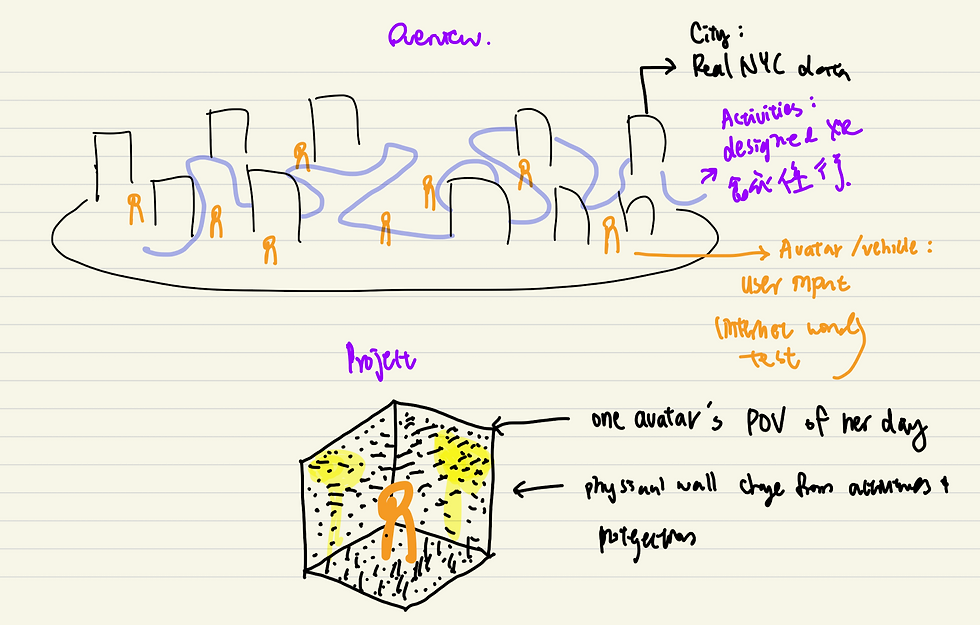 Overview.
City:
Real NYC data
Activities:
designed XR
任行.
Avatar/vehicle:
user input
(internet world
test)
Project
one avatar's POV of her day
physical wall change from activities +
projections